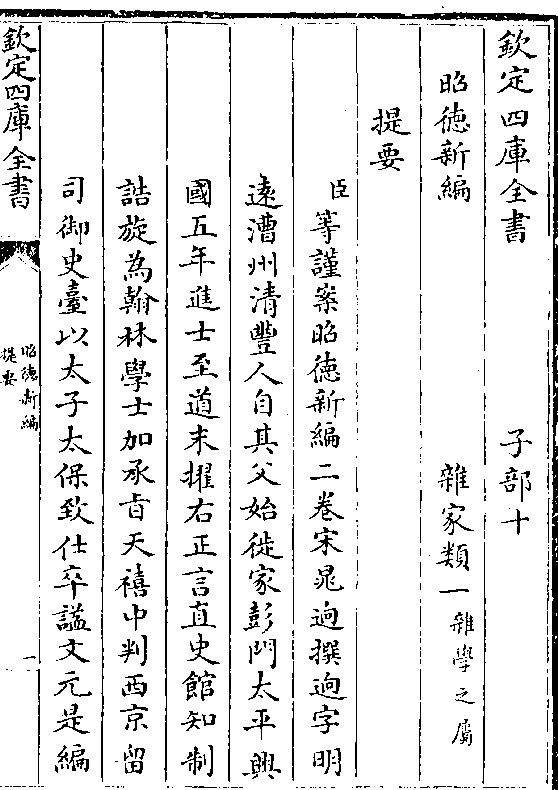 欽定四庫全書 子部十
昭徳新編 雜家類一雜學之屬
提要
臣等謹案昭徳新編二卷宋晁迥撰迥字明
遠澶州清豐人自其父始徙家彭門太平興
國五年進士至道末擢右正言直史館知制
誥旋為翰林學士加承旨天禧中判西京留
司御史臺以太子太保致仕卒諡文元是編
欽定四庫全書
昭徳新編
提要
一